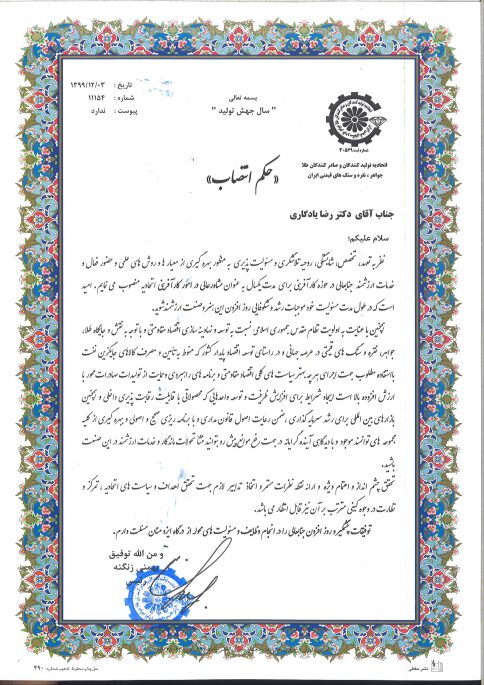 تاریخ : ۱۳۹۹/۱۲/۰۳
شماره : ۱۱۱۵۴
پیوست : ندارد
بسمه تعالی
" سال جهش تولید "
شماره ثبت ۳۰۵۶۹
اتحادیه تولید کنندگان و صادر کنندگان طلا
جواهر ، نقره و سنگ های قیمتی ایران
«حکم انتصاب»
جناب آقای دکتر رضا یادگاری
سلام علیکم؛
نظر به تعهد، تخصص، شایستگی، روحیه تلاشگری و مسئولیت پذیری به منظور بهره گیری از معیارها و روش های علمی و حضور فعال و
خدمات ارزشمند جنابعالی در حوزه کارآفرینی برای مدت یکسال به عنوان مشاور عالی در امور کارآفرینی اتحادیه منصوب می نمایم. امید
است که در طول مدت مسئولیت خود موجبات رشد و شکوفایی روز افزون این هنر و صنعت ارزشمند شوید.
همچنین با عنایت به اولویت نظام مقدس جمهوری اسلامی نسبت به توسعه و نهادینه سازی اقتصاد مقاومتی و با توجه به نقش و جایگاه طلا،
جواهر، نقره و سنگ های قیمتی در عرصه جهانی و در راستای توسعه اقتصاد پایدار کشور که منوط به تامین و مصرف کالاهای جایگزین نفت
با استفاده مطلوب جهت اجرای هر چه بهتر سیاست های کلی اقتصاد مقاومتی و برنامه های راهبردی و حمایت از تولیدات صادرات محور با
ارزش افزوده بالا است ایجاد شرایط برای افزایش ظرفیت و توسعه واحدهایی که محصولاتی با قابلیت رقابت پذیری داخلی و همچنین
بازارهای بین المللی برای رشد سرمایه گذاری، ضمن رعایت اصول قانون مداری و با برنامه ریزی صحیح و اصولی و بهره گیری از کلیه
مجموعه های توانمند موجود و با دیدگاهی آینده گرایانه در جهت رفع موانع پیش رو بتوانید منشا تحولات ماندگار و خدمات ارزشمند در این صنعت
باشید.
تحقق چشم انداز و اهتمام ویژه و ارائه نقطه نظرات مستمر و اتخاذ تدابیر لازم جهت تحقق اهداف و سیاست های اتحادیه ، تمرکز و
نظارت در وجوه کیفی مترتب بر آن نیز قابل انتظار می باشد.
توفیقات چشمگیر و روز افزون جنابعالی را در انجام وظایف و مسئولیت های محوله از درگاه ایزد منان مسئلت دارم.
و من الله توفیق
بهمنی زنگنه
رئیس
نشر حافظی
حق چاپ محفوظ . کدچاپ شماره : ۳۹۰